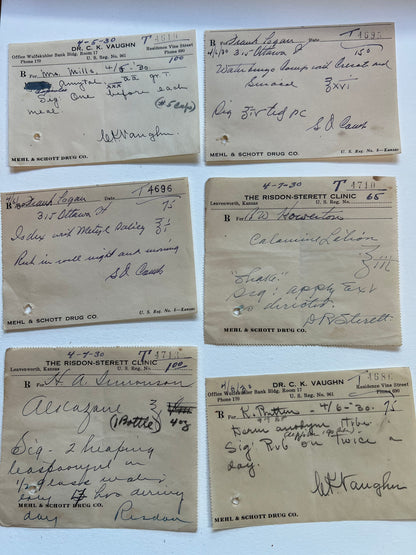 4-5-30 T 4679
DR. C. K. VAUGHN
Office Wulfekuhler Bank Bldg. Room 17
Residence Vine Street
Phone 170
U. S. Reg. No. 961
Phone 690
℞ For Mrs. Mills. 4/5-'30. 1 00
Amytal aa gr T
Sig One before each
meal.
(#5 caps)
CK Vaughn.
MEHL & SCHOTT DRUG CO.
℞ Frank Logan T 4695
4/6/30 315 Ottawa St 1 50
and
℥ XVI
Sig ʒ iv tid pc
MEHL & SCHOTT DRUG CO.
U. S. Reg. No. 8—Kansas
Frank Logan T 4696
315 Ottawa St 75
Rub in well night and morning
MEHL & SCHOTT DRUG CO.
U. S. Reg. No. 8—Kansas
4-7-30 T 4710
THE RISDON-STERETT CLINIC 65
Leavenworth, Kansas
U. S. Reg. No.
℞ W Howerton
Calamine Lotion
℥ iii
"Shake"
Sig: apply as
so directed.
DR Sterett.
MEHL & SCHOTT DRUG CO.
4-7-30 T 471
THE RISDON-STERETT CLINIC 1 00
Leavenworth, Kansas
U. S. Reg. No.
℞ For H. A. Simonson
Alkazane
(1 Bottle) 4 oz
Sig - 2 heaping
teaspoonful in
1/2 glass water
every 4 hrs during
day Risdon
MEHL & SCHOTT DRUG CO.
4/6/30 4686
DR. C. K. VAUGHN
Office Wulfekuhler Bank Bldg. Room 17
Residence Vine Street
Phone 170
U. S. Reg. No. 961
Phone 690
℞ For K. - 4/6-30. 75
Sig Rub on twice a
day.
CK Vaughn
MEHL & SCHOTT DRUG CO.